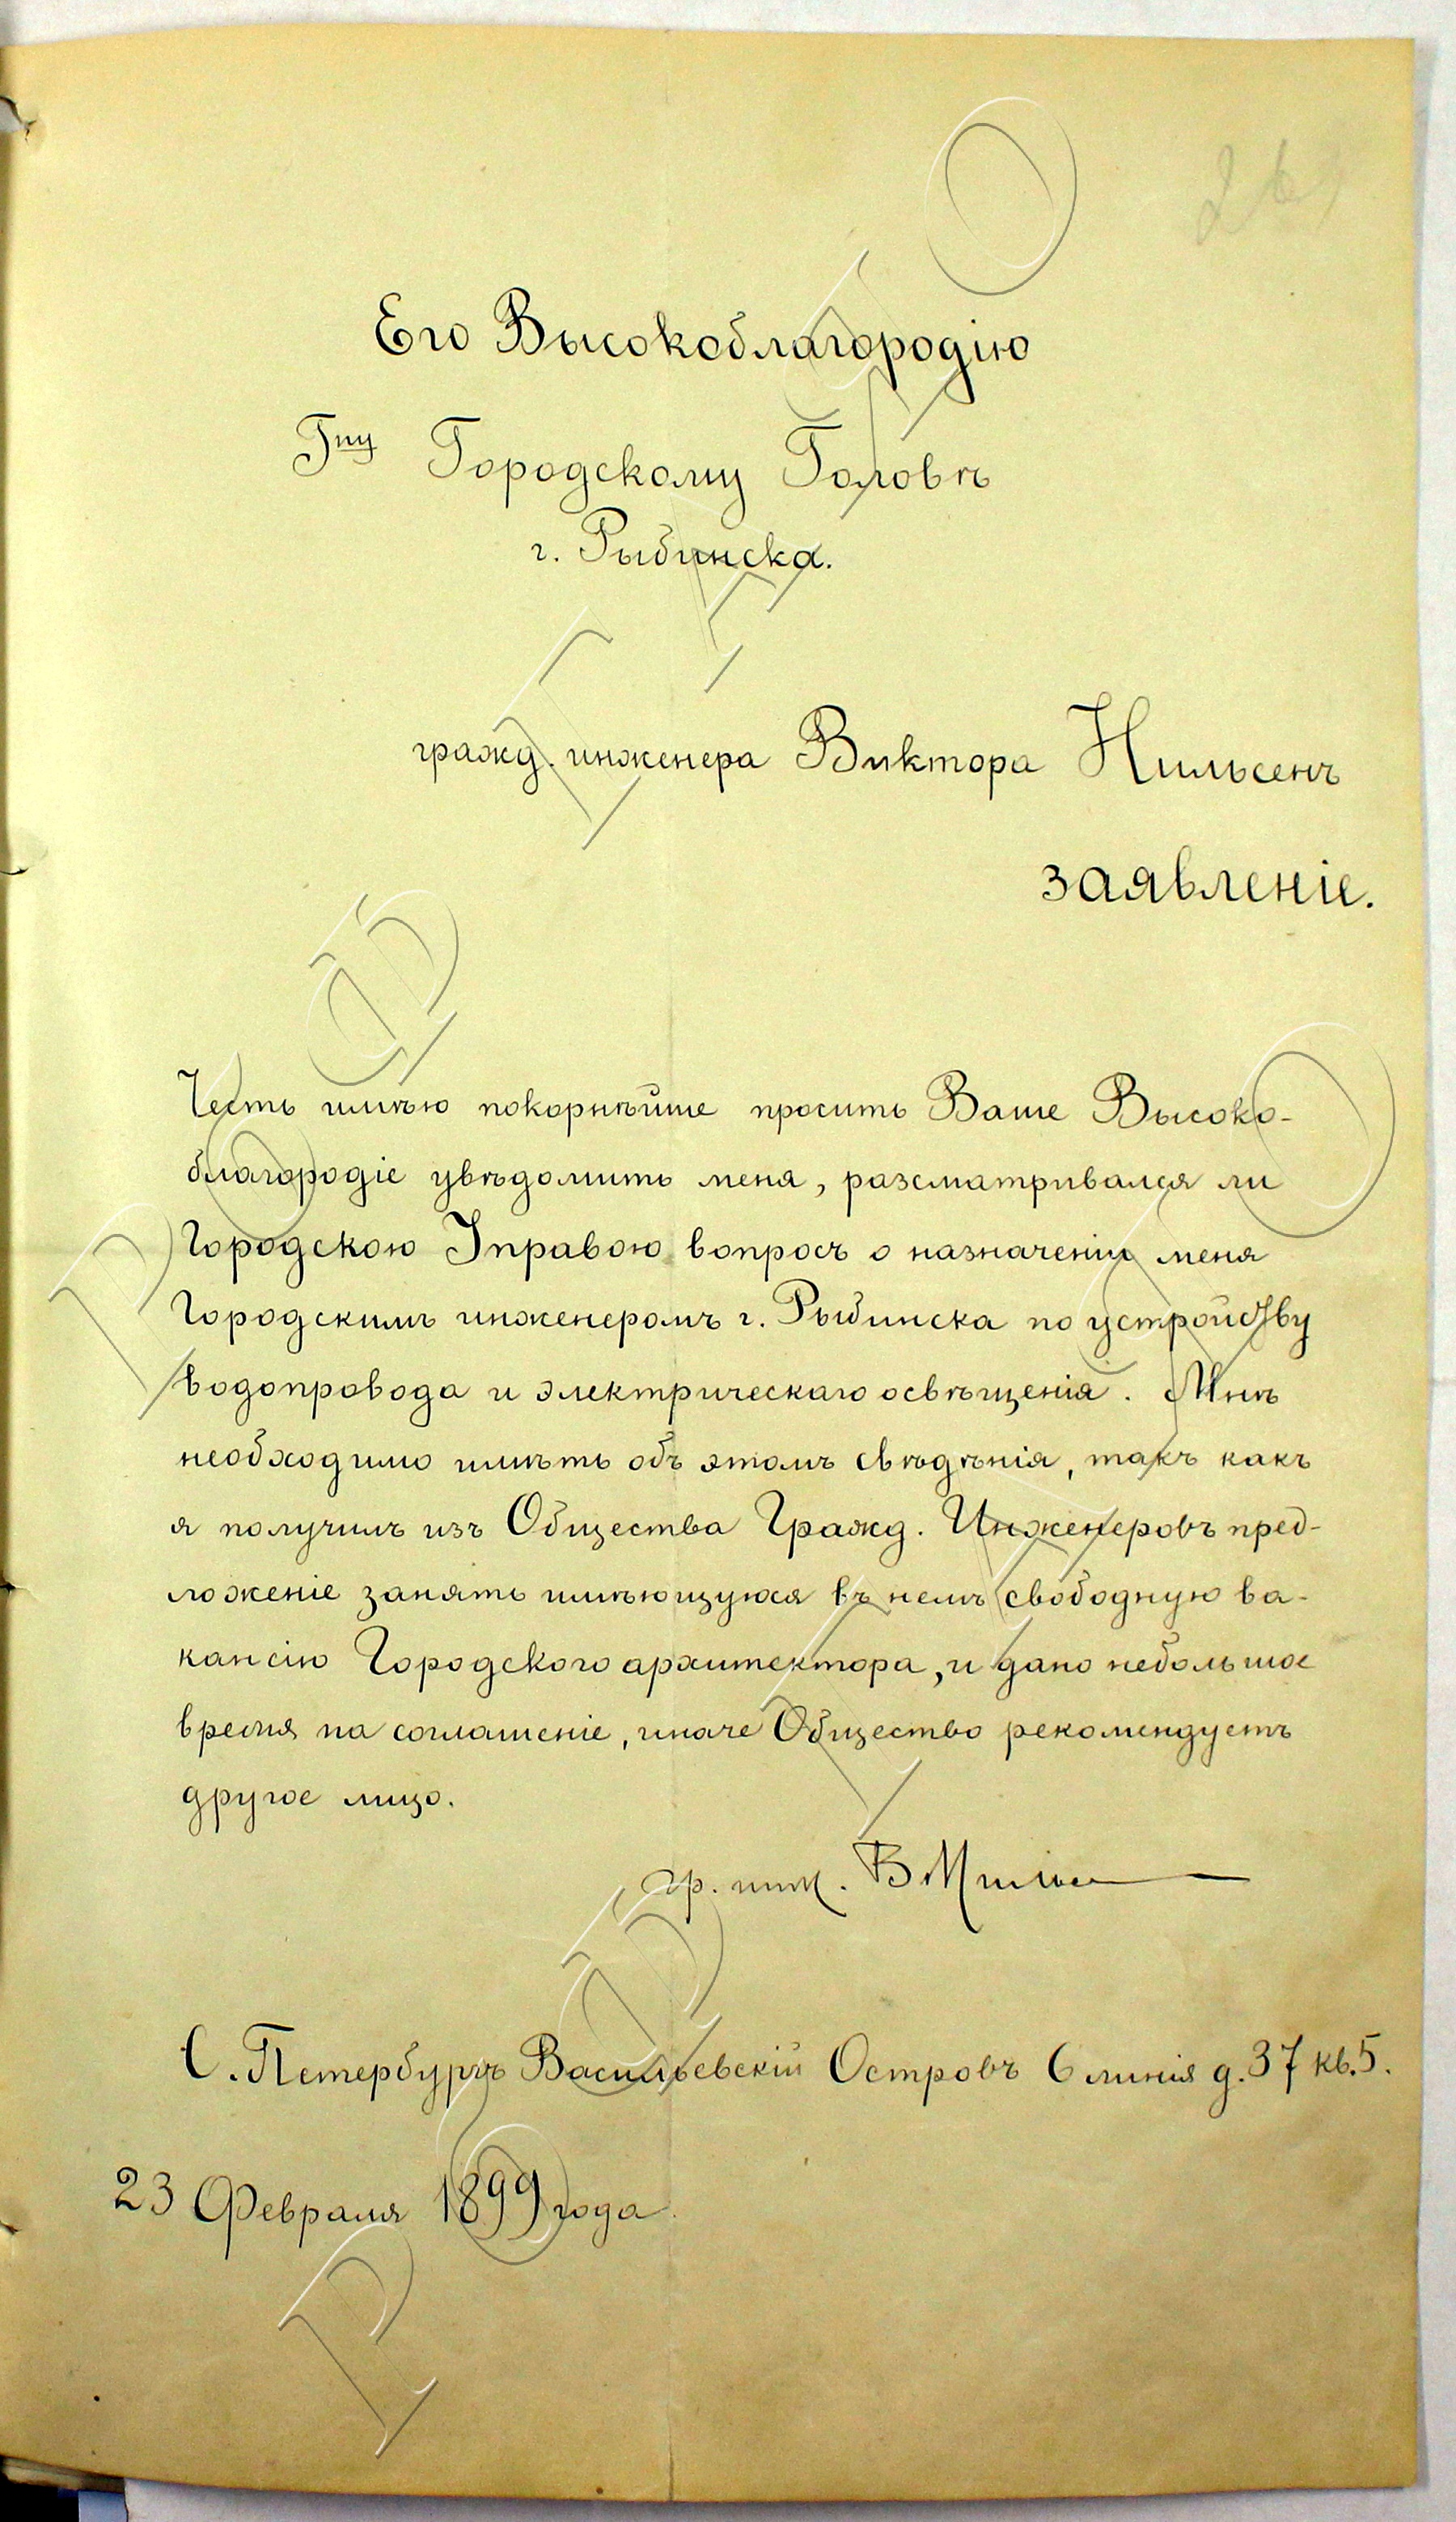 Его Высокоблагородію
Гну Городскому Головѣ
г. Рыбинска.
гражд. инженера Виктора Нильсенъ
заявленіе.
Честь имѣю покорнѣйше просить Ваше Высоко-
благородіе увѣдомить меня, разсматривался ли
Городскою Управою вопросъ о назначеніи меня
Городскимъ инженеромъ г. Рыбинска по устройству
водопровода и электрическаго освѣщенія. Мнѣ
необходимо имѣть объ этомъ свѣдѣнія, такъ какъ
я получилъ изъ Общества Гражд. Инженеровъ пред-
ложеніе занять имѣющуюся въ немъ свободную ва-
кансію Городского архитектора, и дано небольшое
время на соглашеніе, иначе Общество рекомендуетъ
другое лицо.
гр. инж. В Нильсе
С. Петербургъ Васильевскій Островъ 6 линія д. 37 кв. 5.
23 Февраля 1899 года